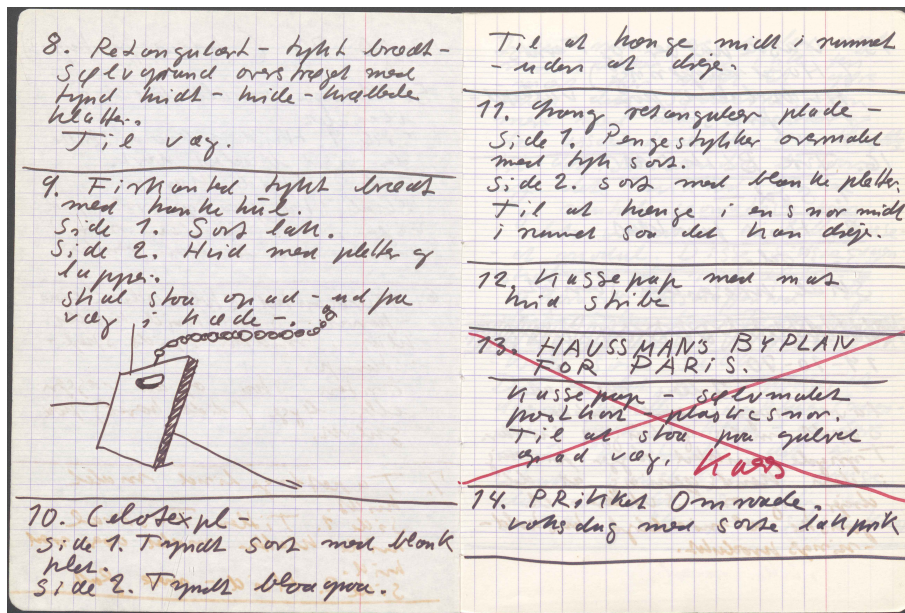 8. Retangulært - tykt brædt -
Sølvgrund overstrøget med
tynd hvidt - hvide - krællede
klatter.
Til væg.
9. Firkanted tykt brædt
med hanke hul.
Side 1. Sort lak.
Side 2. Hvid med pletter og
lapper.
skal staa op ad - ud paa
væg i kæde -.
10. Celotexpl -
Side 1. Tyndt sort med blank
plet.
Side 2. Tyndt blaagraa.
Til at hænge midt i rummet
- uden at dreje.
11. Lang retangulær plade -
Side 1. Pengestykker overmalet
med tyk sort.
Side 2. Sort med blanke pletter.
Til at hænge i en snor midt
i rummet saa det kan dreje.
12. Kassepap med mat
hvid stribe
13. HAUSSMANS BYPLAN
FOR PARIS.
Kassepap - sølvmalet
postkort - plasticsnor.
Til at staa paa gulvet
op ad væg. Kass
14. PRikket Omraade.
voksdug med sorte lakprik